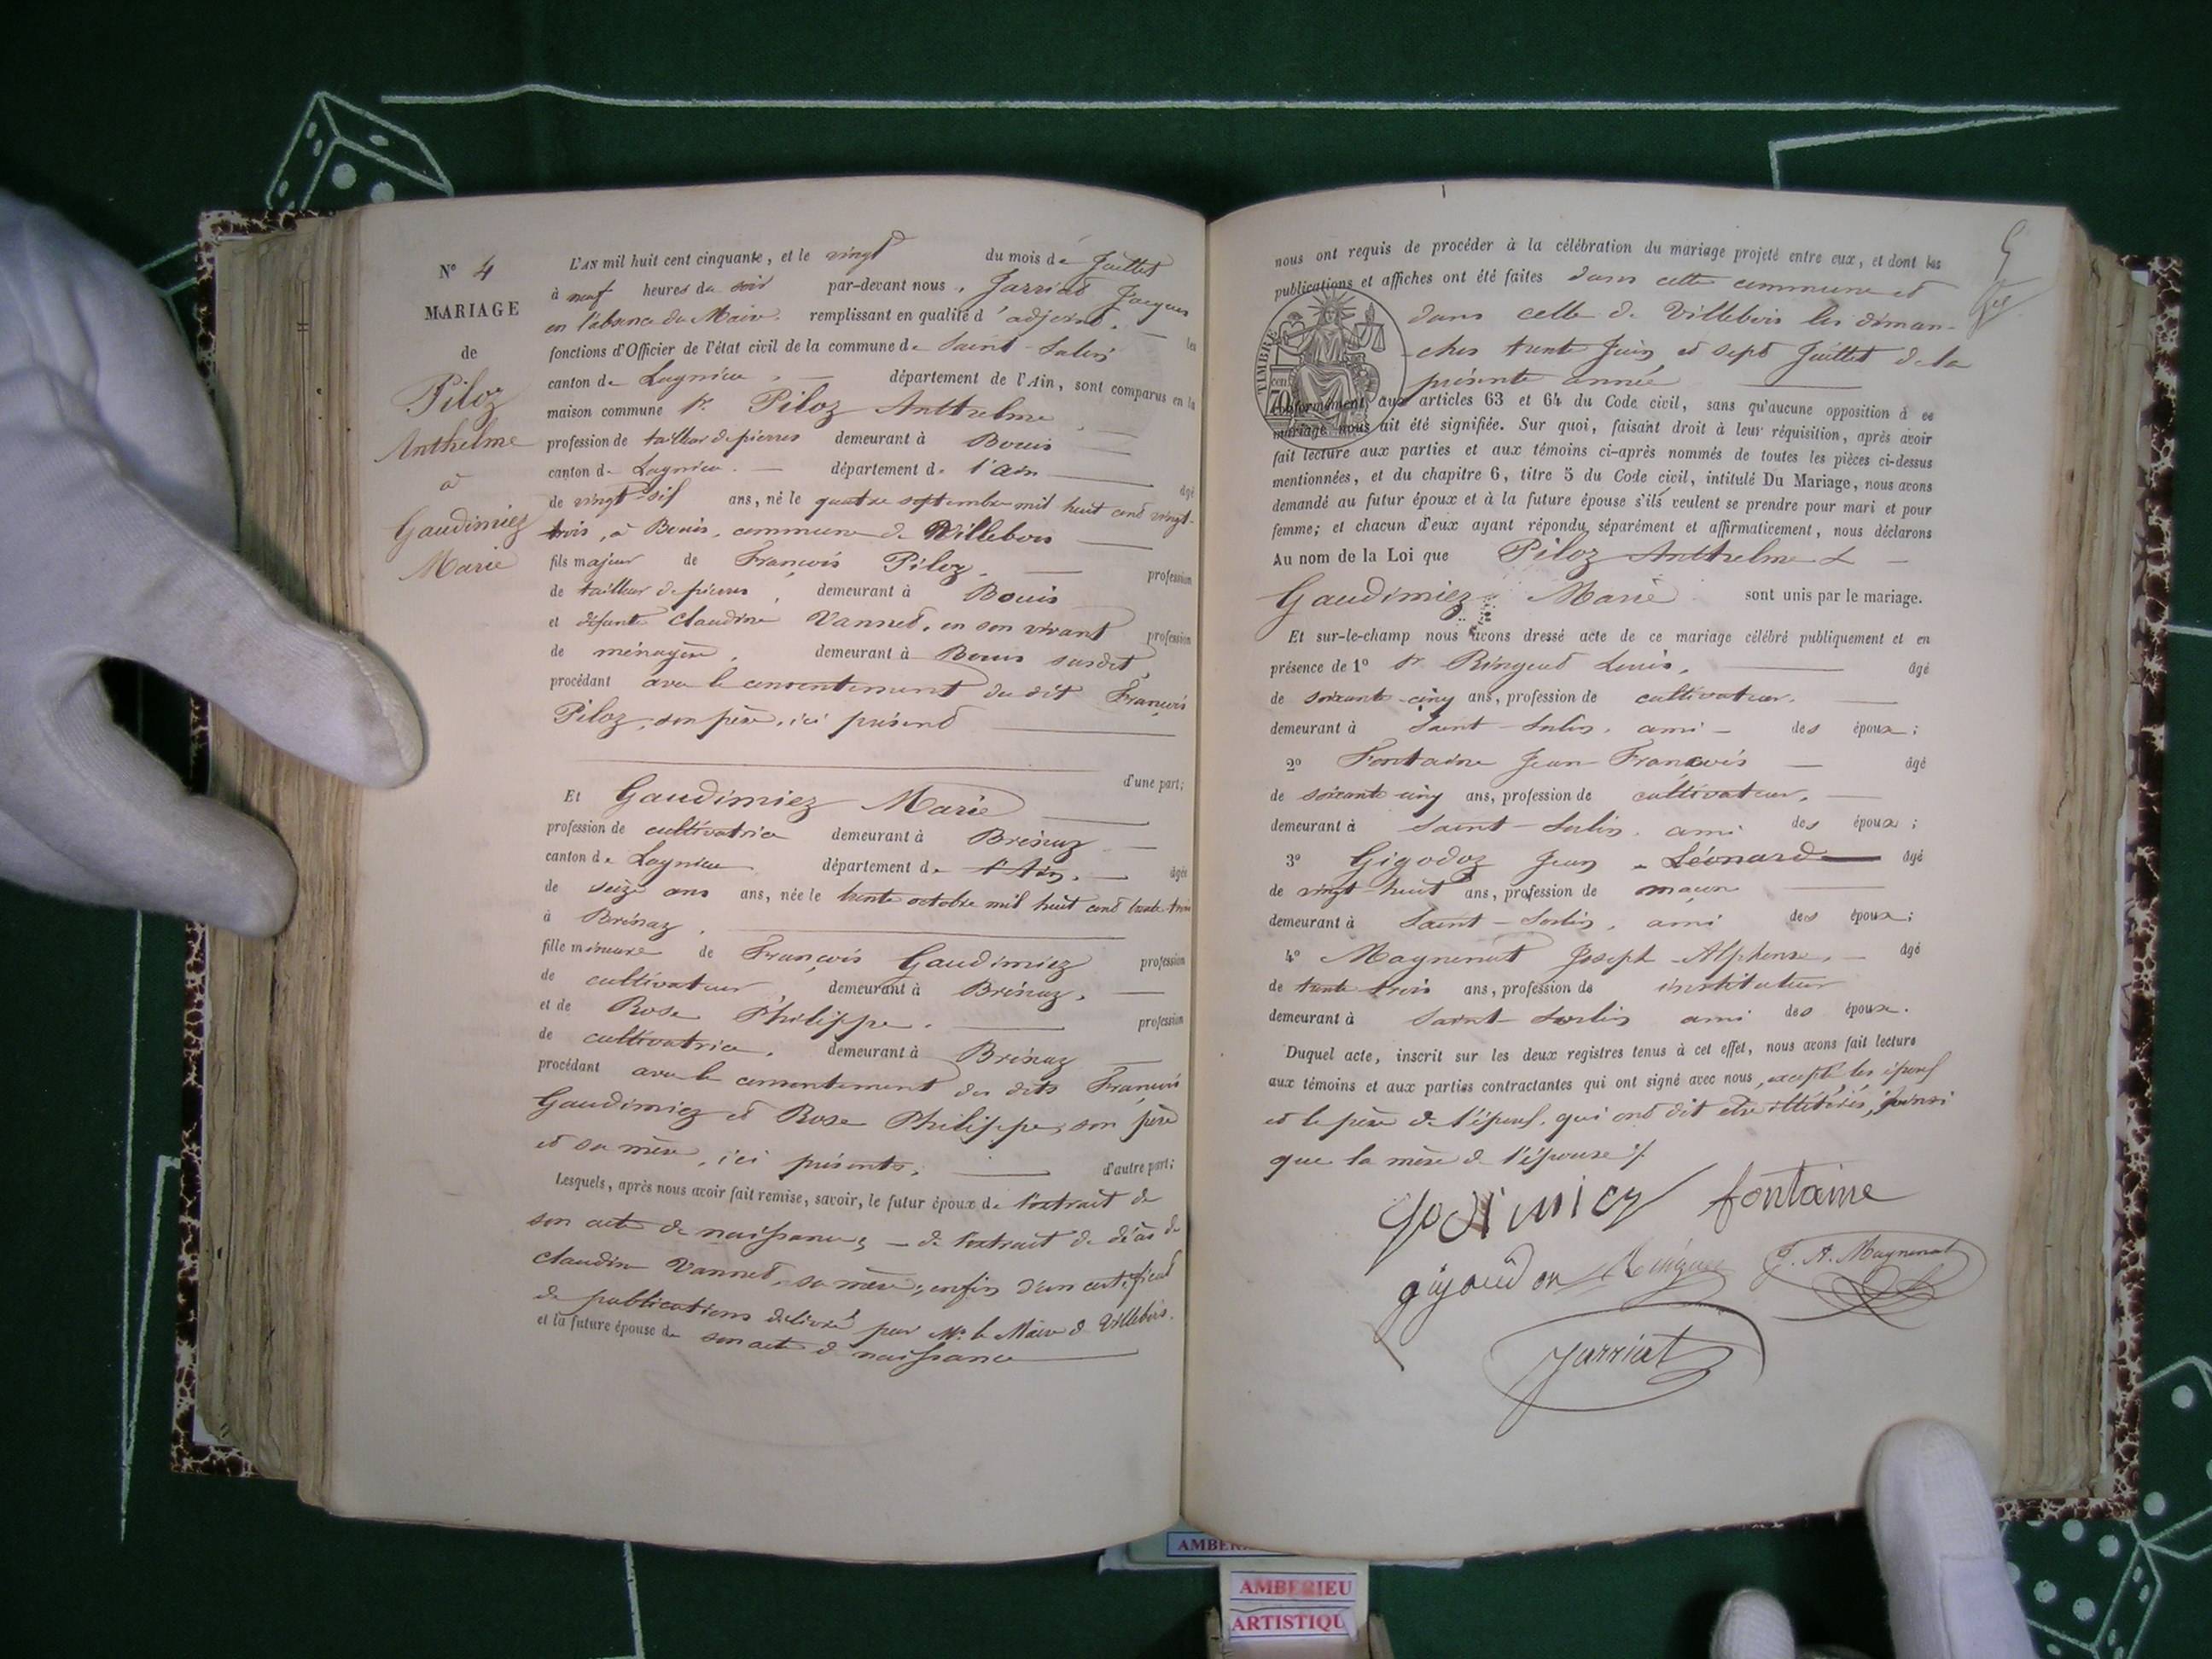 N° 4
MARIAGE
de
Piloz
Anthelme
à
Gaudimiez
Marie
L'AN mil huit cent cinquante, et le vingt du mois de Juillet
à neuf heures du soir par-devant nous, Jarriat Jacques
en l'absence du Maire. remplissant en qualité d'adjoint. les
fonctions d'Officier de l'état civil de la commune de Saint-Sorlin
canton de Lagnieu, département de l'Ain, sont comparus en la
maison commune Sr. Piloz Anthelme
profession de tailleur de pierres demeurant à Bouis
canton de Lagnieu. département de l'Ain âgé
de vingt-six ans, né le quatre septembre mil huit cent vingt-
trois, à Bouis, commune de Villebois
fils majeur de François Piloz, profession
de tailleur de pierres, demeurant à Bouis
et défunte Claudine Vannet, en son vivant profession
de ménagère, demeurant à Bouis susdit,
procédant avec le consentement du dit François
Piloz, son père, ici présent
d'une part;
Et Gaudimiez Marie
profession de cultivatrice demeurant à Brénaz
canton de Lagnieu département de l'Ain, âgée
de seize ans ans, née le trente octobre mil huit cent trente-trois
à Brénaz,
fille mineure de François Gaudimiez profession
de cultivateur, demeurant à Brénaz,
et de Rose Philippe. profession
de cultivatrice, demeurant à Brénaz
procédant avec le consentement des dits François
Gaudimiez et Rose Philippe, son père
et sa mère, ici présents, d'autre part;
Lesquels, après nous avoir fait remise, savoir, le futur époux de l'extrait de
son acte de naissance; - de l'extrait de décès de
Claudine Vannet, sa mère; enfin d'un certificat
de publications délivré par Mr. le Maire de Villebois.
et la future épouse de son acte de naissance
nous ont requis de procéder à la célébration du mariage projeté entre eux, et dont les
publications et affiches ont été faites dans cette commune et
dans celle de Villebois les diman-
ches trente Juin et sept Juillet de la
présente année
TIMBRE
70 cent
conformément aux articles 63 et 64 du Code civil, sans qu'aucune opposition à ce
mariage nous ait été signifiée. Sur quoi, faisant droit à leur réquisition, après avoir
fait lecture aux parties et aux témoins ci-après nommés de toutes les pièces ci-dessus
mentionnées, et du chapitre 6, titre 5 du Code civil, intitulé Du Mariage, nous avons
demandé au futur époux et à la future épouse s'ils veulent se prendre pour mari et pour
femme; et chacun d'eux ayant répondu séparément et affirmativement, nous déclarons
Au nom de la Loi que Piloz Anthelme &
Gaudimiez Marie sont unis par le mariage.
Et sur-le-champ nous avons dressé acte de ce mariage célébré publiquement et en
présence de 1° Sr Ringuet Louis, âgé
de soixante-cinq ans, profession de cultivateur,
demeurant à Saint-Sorlin, ami des époux;
2° Fontaine Jean-François âgé
de soixante cinq ans, profession de cultivateur,
demeurant à Saint-Sorlin, ami des époux;
3° Gigodoz Jean-Léonard âgé
de vingt-huit ans, profession de maçon
demeurant à Saint-Sorlin, ami des époux;
4° Magnenat Joseph-Alphonse, âgé
de trente trois ans, profession de instituteur
demeurant à Saint-Sorlin ami des époux.
Duquel acte, inscrit sur les deux registres tenus à cet effet, nous avons fait lecture
aux témoins et aux parties contractantes qui ont signé avec nous, excepté les époux
et le père de l'époux, qui ont dit être illitérés, ainsi
que la mère de l'épouse
fontaine
J. A. Magnenat
Jarriat
AMBERIEU
ARTISTIQU